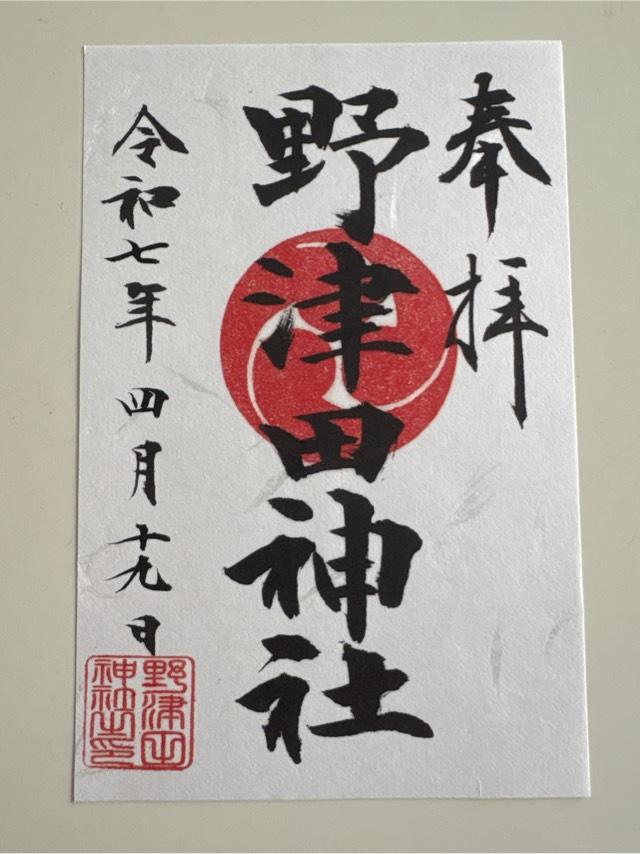 奉拝
野津田神社
令和七年四月十九日
野津田
神社之印